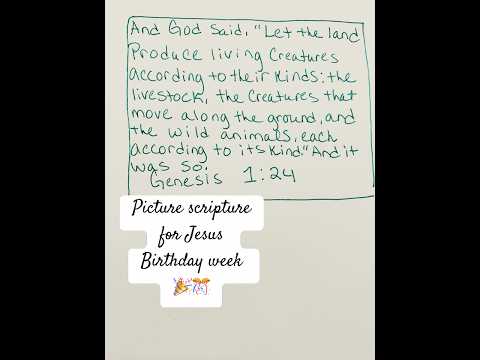 And God said, "Let the land
Produce living Creatures
according to their kinds: the
livestock, the Creatures that
move along the ground, and
the wild animals, each
according to its kind." And it
was so.
Genesis 1:24
Picture scripture
for Jesus
Birthday week
🎉🎊